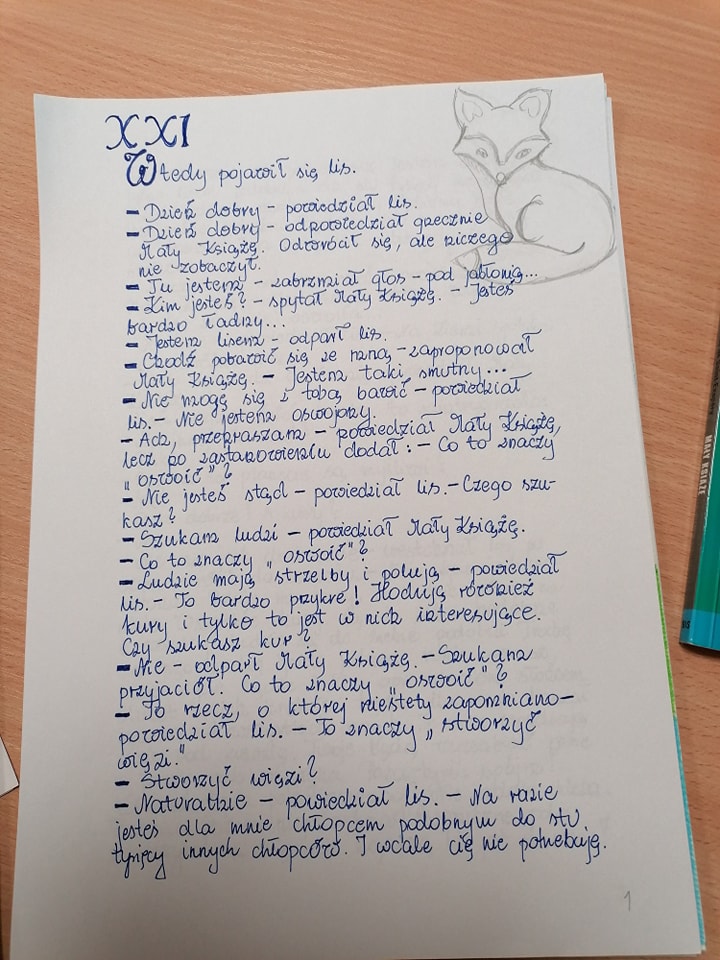 XXI
Wtedy pojawił się lis.
– Dzień dobry – powiedział lis.
– Dzień dobry – odpowiedział grzecznie
Mały Książę. Odwrócił się, ale niczego
nie zobaczył.
– Tu jestem – zabrzmiał głos – pod jabłonią...
– Kim jesteś? – spytał Mały Książę. – Jesteś
bardzo ładny...
– Jestem lisem – odparł lis.
– Chodź pobawić się ze mną – zaproponował
Mały Książę. – Jestem taki smutny...
– Nie mogę się z tobą bawić – powiedział
lis. – Nie jestem oswojony.
– Ach, przepraszam – powiedział Mały Książę,
lecz po zastanowieniu dodał: – Co to znaczy
„oswoić"?
– Nie jesteś stąd – powiedział lis. – Czego szu-
kasz?
– Szukam ludzi – powiedział Mały Książę.
– Co to znaczy „oswoić"?
– Ludzie mają strzelby i polują – powiedział
lis. – To bardzo przykre! Hodują również
kury i tylko to jest w nich interesujące.
Czy szukasz kur?
– Nie – odparł Mały Książę. – Szukam
przyjaciół. Co to znaczy „oswoić"?
– To rzecz, o której niestety zapomniano –
powiedział lis. – To znaczy „stworzyć
więzi."
– Stworzyć więzi?
– Naturalnie – powiedział lis. – Na razie
jesteś dla mnie chłopcem podobnym do stu
tysięcy innych chłopców. I wcale cię nie potrzebuję.
1
MAŁY KSIĄŻĘ